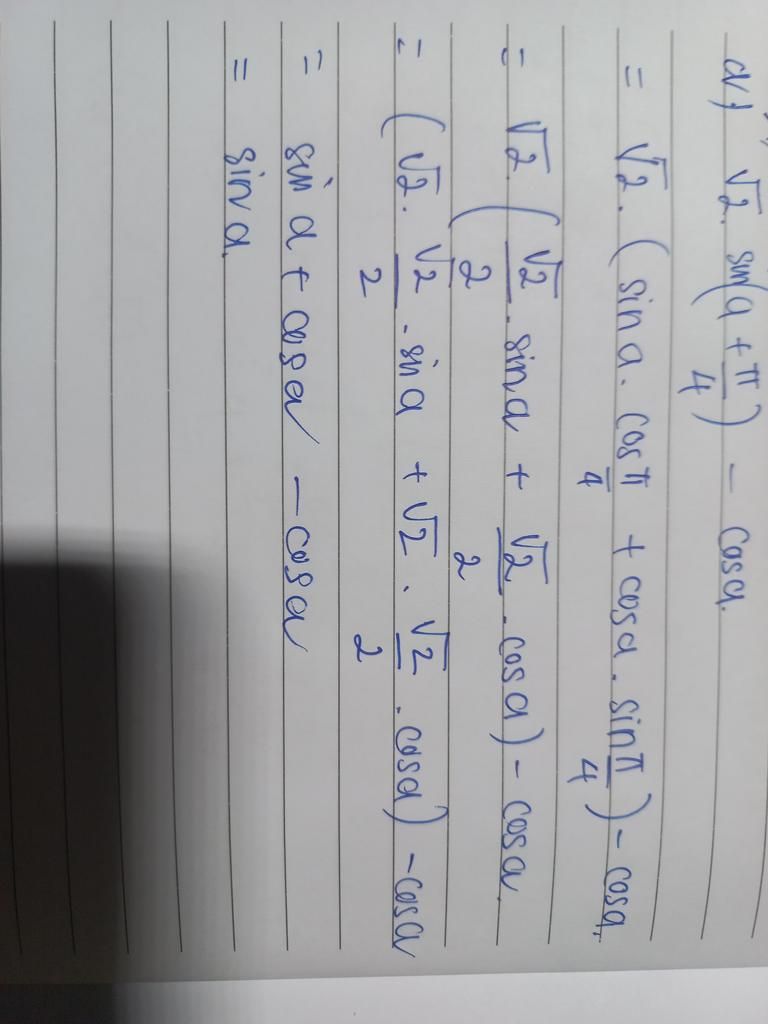 a) √2. sin(a + π/4) - cosa.
= √2. (sina. cos π/4 + cosa. sin π/4) - cosa.
= √2. (√2/2 . sina + √2/2 . cosa) - cosa.
= (√2. √2/2 . sina + √2 . √2/2 . cosa) - cosa
= sina + cosa - cosa
= sina.